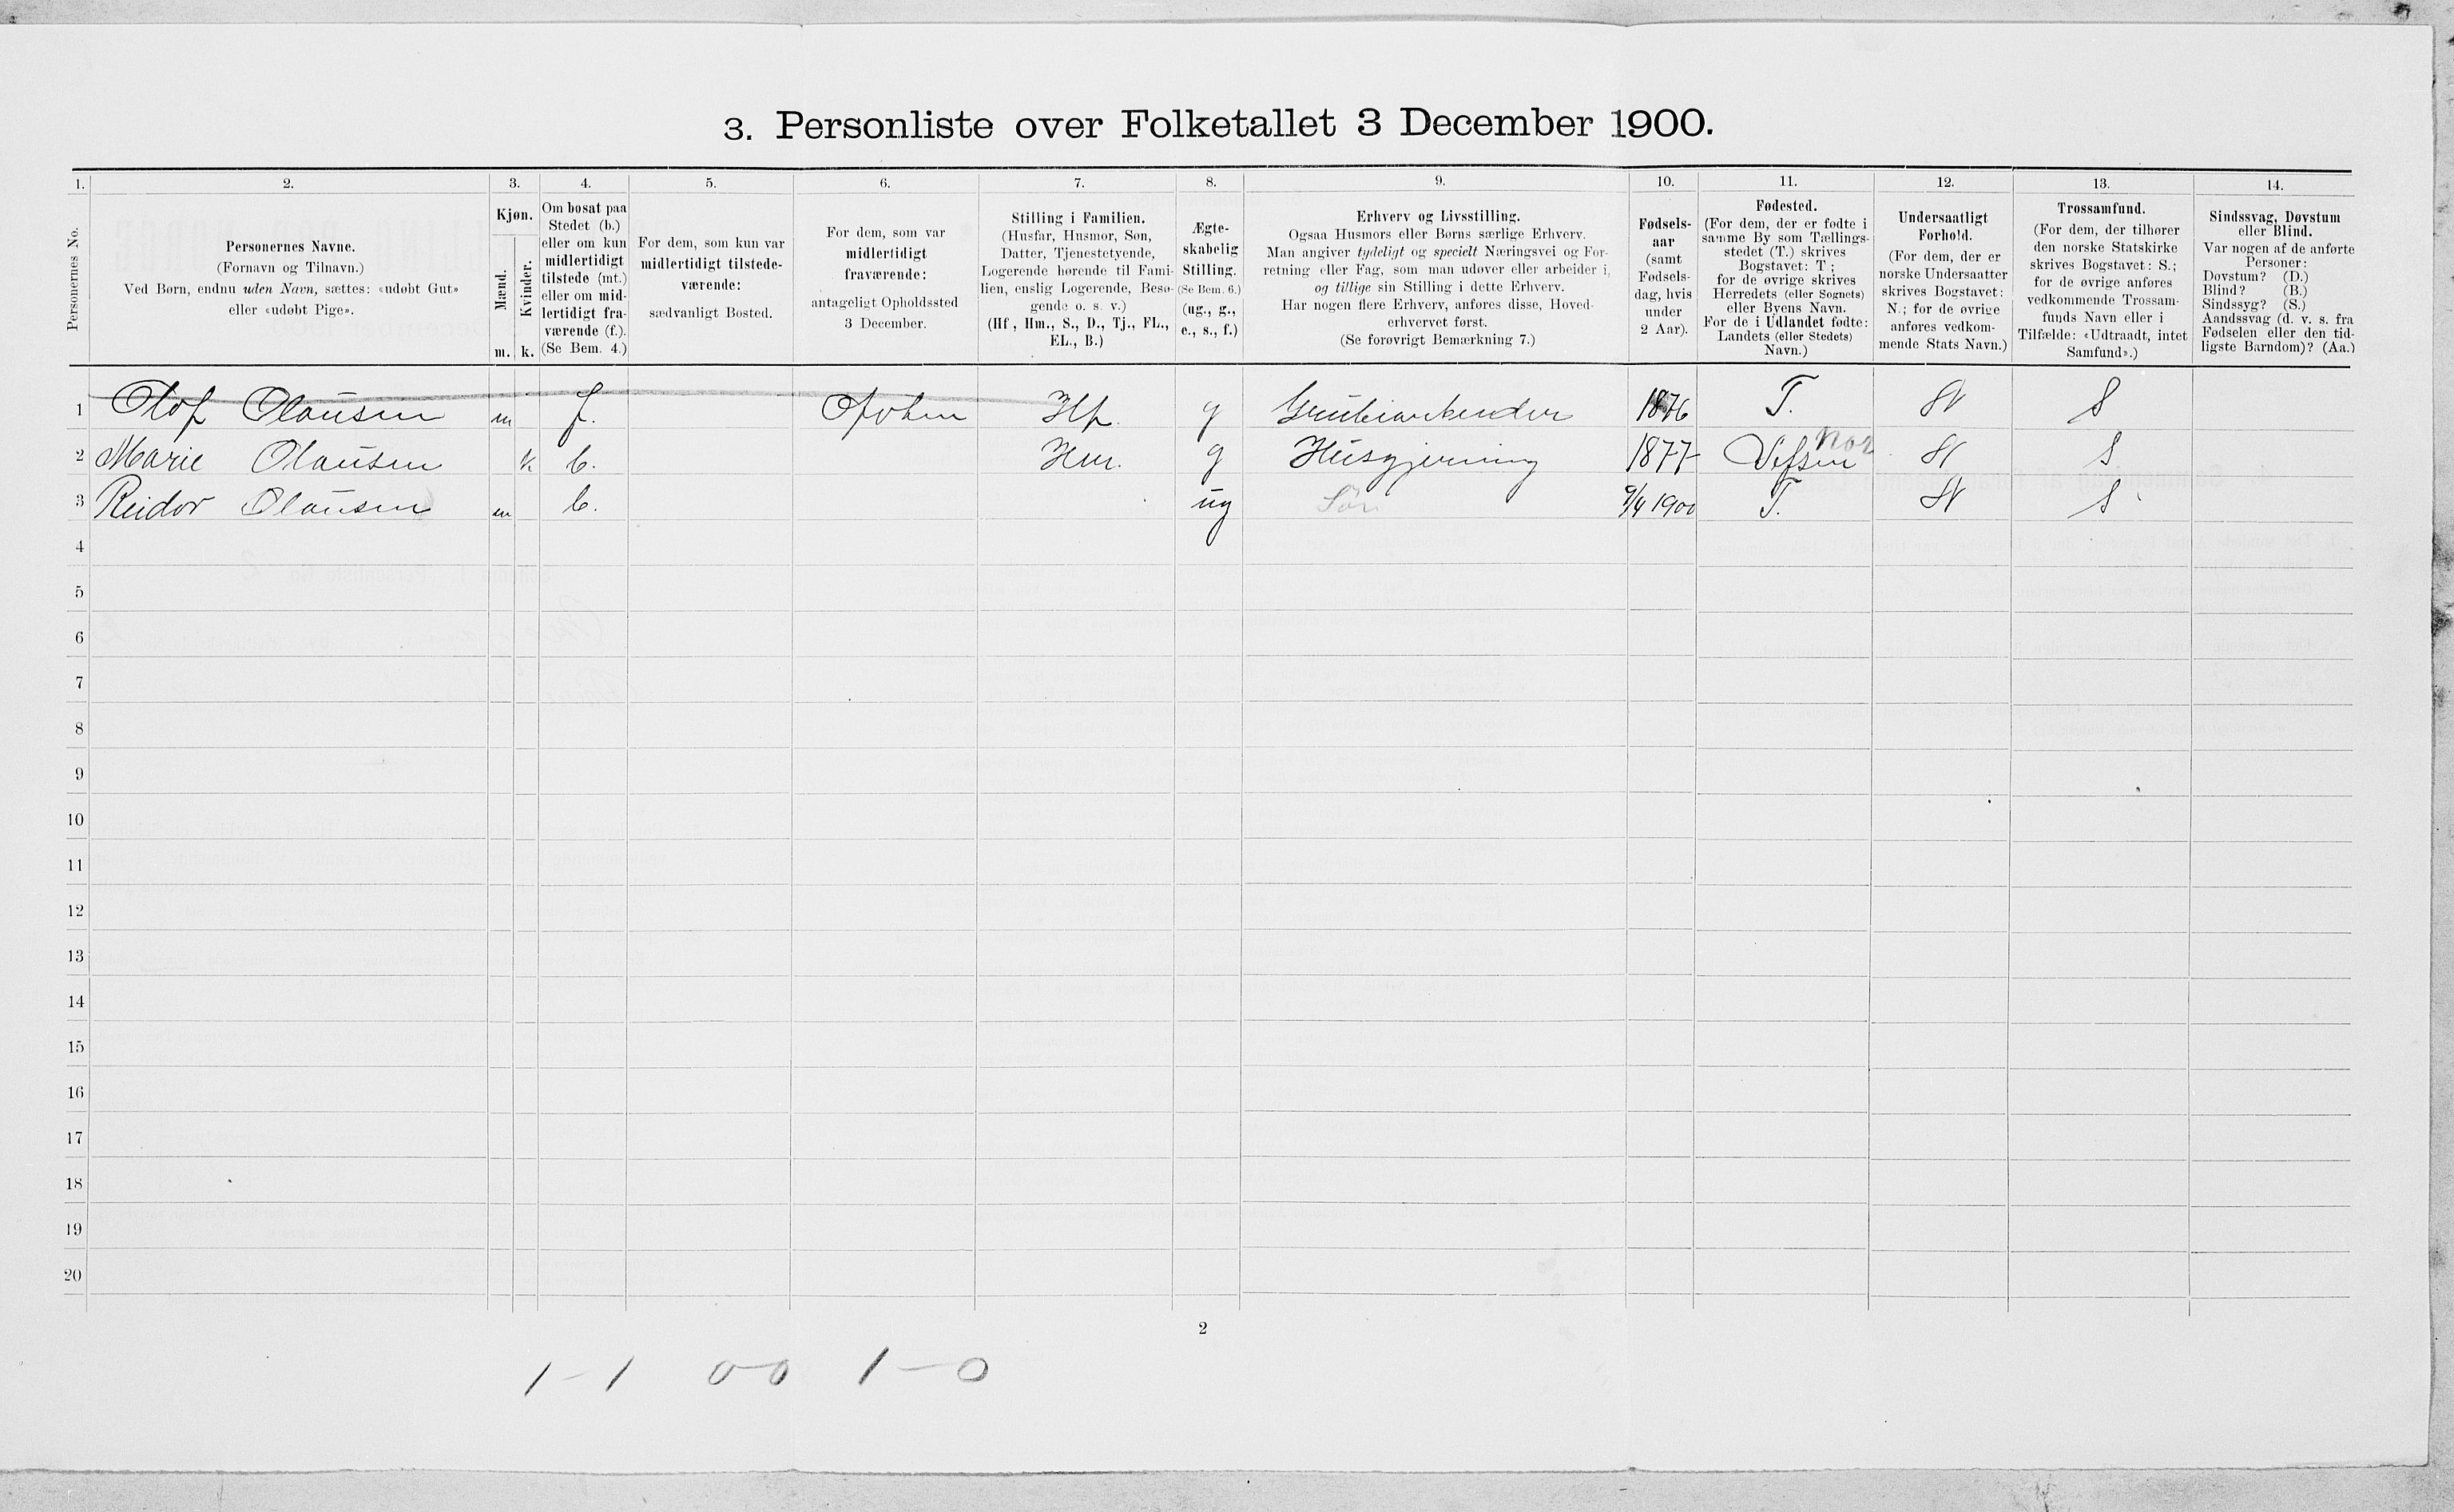 3. Personliste over Folketallet 3 December 1900.
1. 2. 3. 4. 5. 6. 7. 8. 9. 10. 11. 12. 13. 14.
Personernes No.
Personernes Navne.
(Fornavn og Tilnavn.)
Ved Børn, endnu uden Navn, sættes: «udøbt Gut»
eller «udøbt Pige».
Kjøn.
Mænd.
m.
Kvinder.
k.
Om bosat paa
Stedet (b.)
eller om kun
midlertidigt
tilstede (mt.)
eller om mid-
lertidigt fra-
værende (f.).
(Se Bem. 4.)
For dem, som kun var
midlertidigt tilstede-
værende:
sædvanligt Bosted.
For dem, som var
midlertidigt
fraværende:
antageligt Opholdssted
3 December.
Stilling i Familien.
(Husfar, Husmor, Søn,
Datter, Tjenestetyende,
Logerende hørende til Fami-
lien, enslig Logerende, Besø-
gende o. s. v.)
(Hf, Hm., S., D., Tj., FL.,
EL., B.)
Ægte-
skabelig
Stilling.
(Se Bem. 6.)
(ug., g.,
e., s., f.)
Erhverv og Livsstilling.
Ogsaa Husmors eller Børns særlige Erhverv.
Man angiver tydeligt og specielt Næringsvei og For-
retning eller Fag, som man udøver eller arbeider i,
og tillige sin Stilling i dette Erhverv.
Har nogen flere Erhverv, anføres disse, Hoved-
erhvervet først.
(Se forøvrigt Bemærkning 7.)
Fødsels-
aar
(samt
Fødsels-
dag, hvis
under
2 Aar).
Fødested.
(For dem, der er fødte i
samme By som Tællings-
stedet (T.) skrives
Bogstavet: T;
for de øvrige skrives
Herredets (eller Sognets)
eller Byens Navn.
For de i Udlandet fødte:
Landets (eller Stedets)
Navn.)
Undersaatligt
Forhold.
(For dem, der er
norske Undersaatter
skrives Bogstavet:
N.; for de øvrige
anføres vedkom-
mende Stats Navn.)
Trossamfund.
(For dem, der tilhører
den norske Statskirke
skrives Bogstavet: S.;
for de øvrige anføres
vedkommende Trossam-
funds Navn eller i
Tilfælde: «Udtraadt, intet
Samfund».)
Sindssvag, Døvstum
eller Blind.
Var nogen af de anførte
Personer:
Døvstum? (D.)
Blind? (B.)
Sindssyg? (S.)
Aandssvag (d. v. s. fra
Fødselen eller den tid-
ligste Barndom)? (Aa.)
1 Olof Olausen m f. Ofoten Hf. g Grubearbeider 1876 T. N S
2 Marie Olausen k b. Hm. g Husgjerning 1877 Vefsen Nor N S
3 Reidor Olausen m b. ug Søn 9/4 1900 T. N S
4
5
6
7
8
9
10
11
12
13
14
15
16
17
18
19
20
2
1-1 0-0 1-0